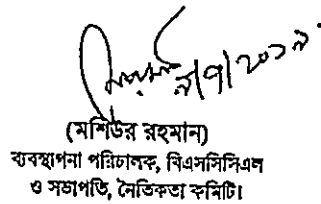 ৯/৭/২০১৯
(মশিউর রহমান)
ব্যবস্থাপনা পরিচালক, বিএসসিসিএল
ও সভাপতি, নৈতিকতা কমিটি।